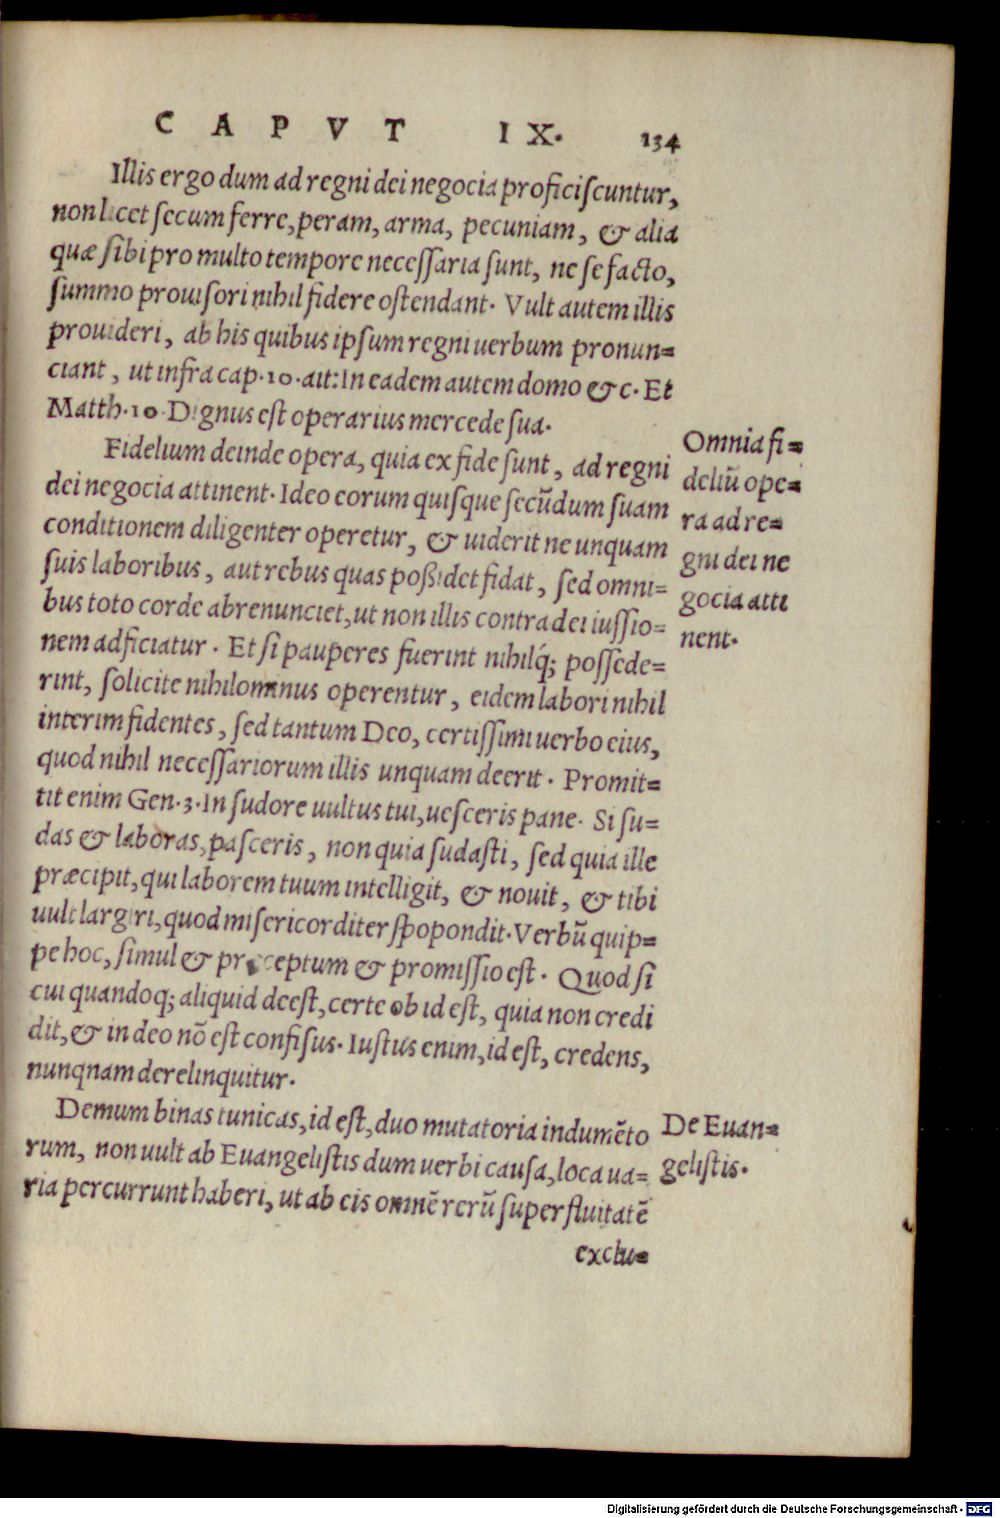 CAPVT IX. 134
Illis ergo dum ad regni dei negocia proficiſcuntur,
non licet ſecum ferre, peram, arma, pecuniam, & alia
quæ ſibi pro multo tempore neceſſaria ſunt, ne ſe facto,
ſummo prouiſori nihil fidere oſtendant. Vult autem illis
prouideri, ab his quibus ipſum regni uerbum pronun=
ciant, ut infra cap.10.ait: In eadem autem domo &c. Et
Matth.10 Dignus eſt operarius mercede ſua.
Fidelium deinde opera, quia ex fide ſunt, ad regni
dei negocia attinent. Ideo eorum quiſque ſecūdum ſuam
conditionem diligenter operetur, & uiderit ne unquam
ſuis laboribus, aut rebus quas poßidet fidat, ſed omni=
bus toto corde abrenunciet, ut non illis contra dei iuſſio=
nem adficiatur. Et ſi pauperes fuerint nihilq́; poſſede=
rint, ſolicite nihilominus operentur, eidem labori nihil
interim fidentes, ſed tantum Deo, certiſſimi uerbo eius,
quod nihil neceſſariorum illis unquam deerit. Promit=
tit enim Gen.3. In ſudore uultus tui, ueſceris pane. Si ſu=
das & laboras, paſceris, non quia ſudaſti, ſed quia ille
præcipit, qui laborem tuum intelligit, & nouit, & tibi
uult largiri, quod miſericorditer ſpopondit. Verbū quip=
pe hoc, ſimul & præceptum & promiſſio eſt. Quod ſi
cui quandoq; aliquid deeſt, certe ob id eſt, quia non credi
dit, & in deo nō eſt confiſus. Iuſtus enim, id eſt, credens,
nunqnam derelinquitur.
Demum binas tunicas, id eſt, duo mutatoria indumēto
rum, non uult ab Euangeliſtis dum uerbi cauſa, loca ua=
ria percurrunt haberi, ut ab eis omnē rerū ſuperfluitatē
exclu=
Omnia fi=
deliū ope=
ra ad re=
gni dei ne
gocia atti
nent.
De Euan=
geliſtis.
Digitalisierung gefördert durch die Deutsche Forschungsgemeinschaft - DFG